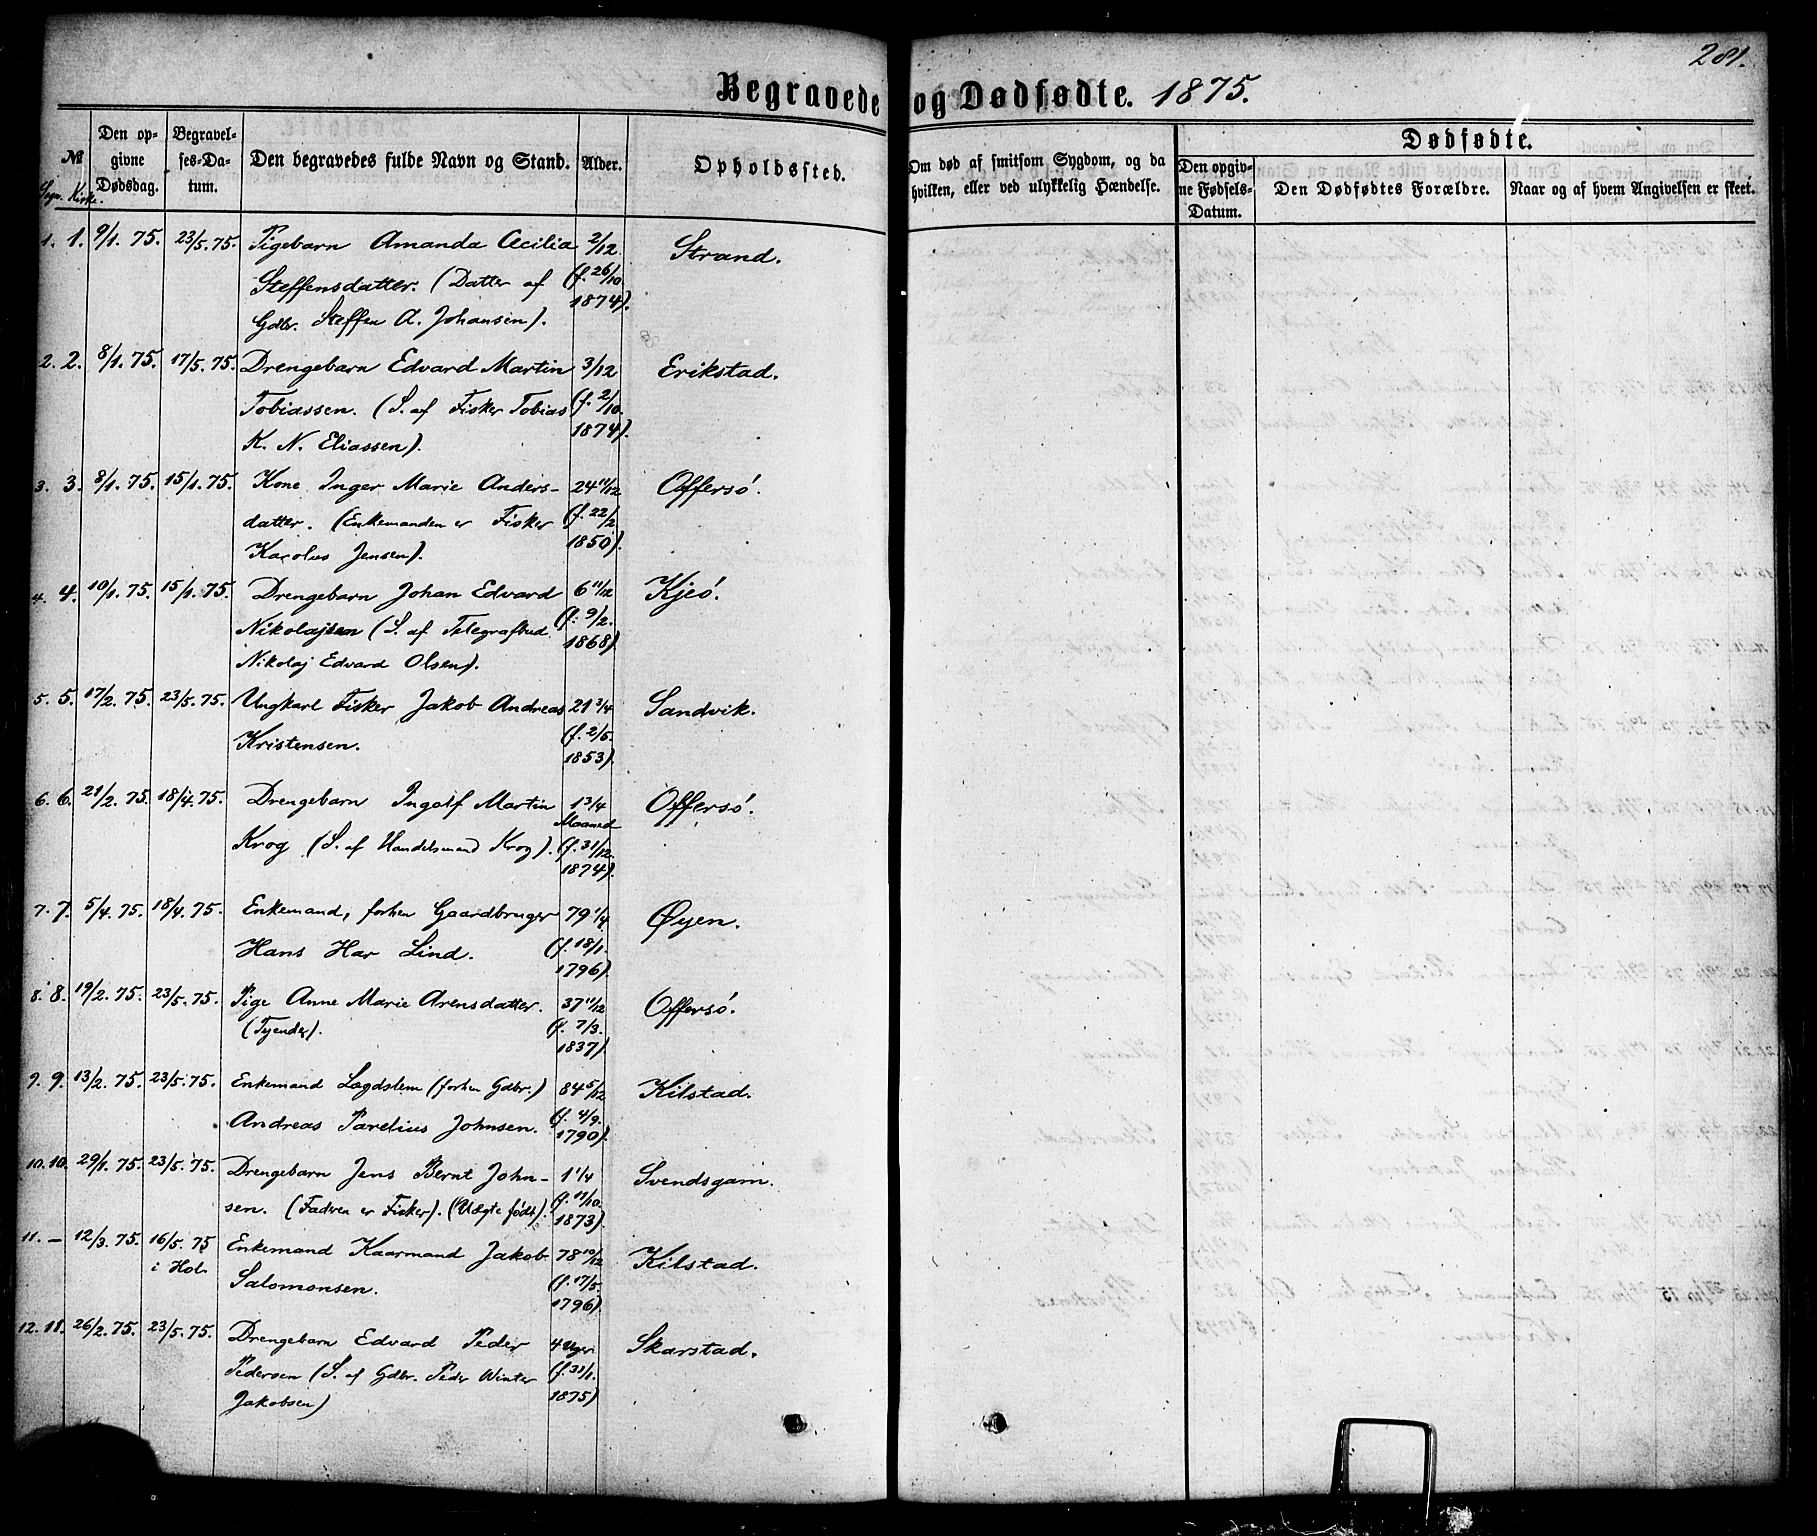 281.
Begravede og Dødfødte. 1875.
No.
Sogn. Kirke.
Den opgivne Dødsdag.
Begravelses-Datum.
Den begravedes fulde Navn og Stand.
Alder.
Opholdssted.
Om død af smitsom Sygdom, og da hvilken, eller ved ulykkelig Hændelse.
Dødfødte.
Den opgivne Fødsels-Datum.
Den Dødfødtes Forældre.
Naar og af hvem Angivelsen er skeet.
1. 1. 9/1. 75. 23/5. 75. Pigebarn Amanda Cecilia 2/12 Strand.
Steffensdatter. (Datter af (f. 26/10
Gdbr. Steffen A. Johansen). 1874).
2. 2. 8/1. 75. 17/5. 75. Drengebarn Edvard Martin 3/12 Erikstad.
Tobiassen. (S. af Fisker Tobias (f. 2/10.
K. N. Eliassen). 1874).
3. 3. 8/1. 75. 15/1. 75. Kone Inger Marie Anders- 24 11/12 Offersø.
datter. (Enkemanden er Fisker (f. 22/2
Karolus Jensen). 1850).
4. 4. 10/1. 75. 15/1. 75. Drengebarn Johan Edvard 6 11/12 Kjeø.
Nikolajsen (S. af Telegrafbud (f. 9/2.
Nikolaj Edvard Olsen). 1868).
5. 5. 17/2. 75. 23/5. 75. Ungkarl Fisker Jakob Andreas 21 3/4 Sandvik.
Kristensen. (f. 2/5.
1853).
6. 6. 21/2. 75. 18/4. 75. Drengebarn Ingolf Martin 1 3/4 Offersø.
Maaned
Krog (S. af Handelsmand Krog). (f. 31/12.
1874).
7. 7. 5/4. 75. 18/4. 75. Enkemand, forhen Gaardbruger 79 1/4 Øyen.
Hans Har Lind. (f. 18/1.
1796).
8. 8. 19/2. 75. 23/5. 75. Pige Anne Marie Arensdatter. 37 11/12 Offersø.
(Tjender). (f. 7/3.
1837).
9. 9. 13/2. 75. 23/5. 75. Enkemand Lægdslem (forhen Gdbr.) 84 5/12 Kilstad.
Andreas Parelius Johnsen. (f. 4/9.
1790).
10. 10. 29/1. 75. 23/5. 75. Drengebarn Jens Bernt John- 1 1/4 Svendsgam.
sen. (Faderen er Fisker). (Uægte født). (f. 11/10.
1873).
11. - 12/3. 75. 16/5. 75 Enkemand Kaarmand Jakob 78 10/12 Kilstad.
i Hol
Salomonsen. (f. 17/5.
1796).
12. 11. 26/2. 75. 23/5. 75. Drengebarn Edvard Peder 4 Uger Skarstad.
Pedersen (S. af Gdbr. Peder Winter (f. 31/1.
Jakobsen) 1875)